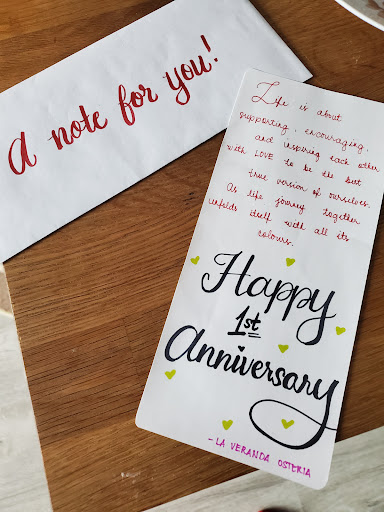 A note for you!
Life is about
supporting, encouraging,
and inspiring each other
with LOVE to be the best
true version of ourselves.
As life journey together
unfolds itself with all its
colours.
Happy
1st
Anniversary
- LA VERANDA OSTERIA